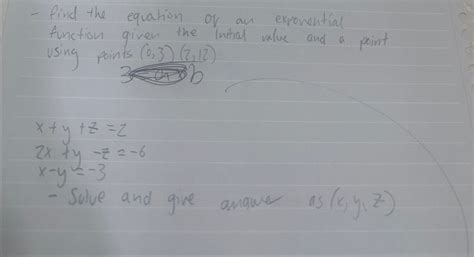 - find the equation of an exponential
function given the initial value and a point
using points (0,3) (2,12)
3 b
x+y+z=2
2x+y-z=-6
x-y=-3
- Solve and give answer as (x,y,z)